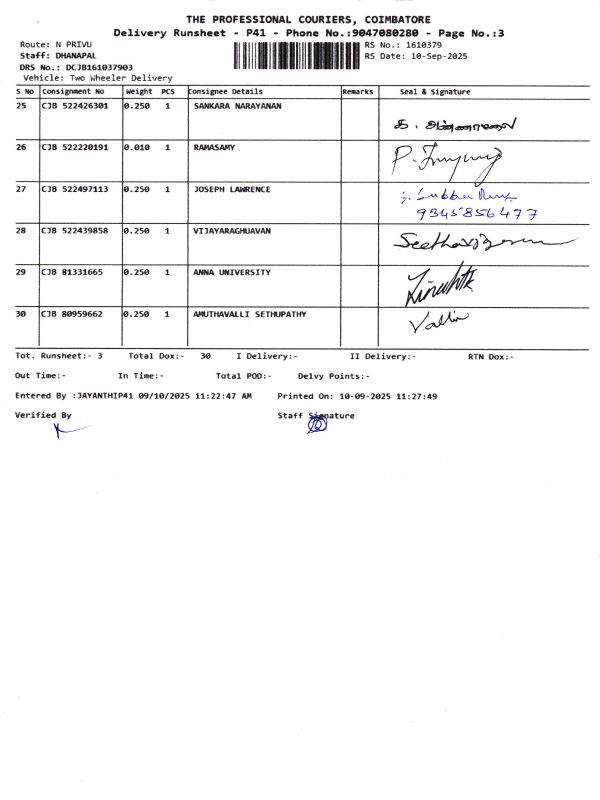 THE PROFESSIONAL COURIERS, COIMBATORE
Delivery Runsheet - P41 - Phone No.:9047080280 - Page No.:3
Route: N PRIVU RS No.: 1610379
Staff: DHANAPAL RS Date: 10-Sep-2025
DRS No.: DCJB161037903
Vehicle: Two Wheeler Delivery
S No Consignment No Weight PCS Consignee Details Remarks Seal & Signature
25 CJB 522426301 0.250 1 SANKARA NARAYANAN
க. அண்ணாமலை
26 CJB 522220191 0.010 1 RAMASAMY
27 CJB 522497113 0.250 1 JOSEPH LAWRENCE
9345856477
28 CJB 522439858 0.250 1 VIJAYARAGHUAVAN
29 CJB 81331665 0.250 1 ANNA UNIVERSITY
30 CJB 80959662 0.250 1 AMUTHAVALLI SETHUPATHY
Valli
Tot. Runsheet:- 3 Total Dox:- 30 I Delivery:- II Delivery:- RTN Dox:-
Out Time:- In Time:- Total POD:- Delvy Points:-
Entered By :JAYANTHIP41 09/10/2025 11:22:47 AM Printed On: 10-09-2025 11:27:49
Verified By Staff Signature